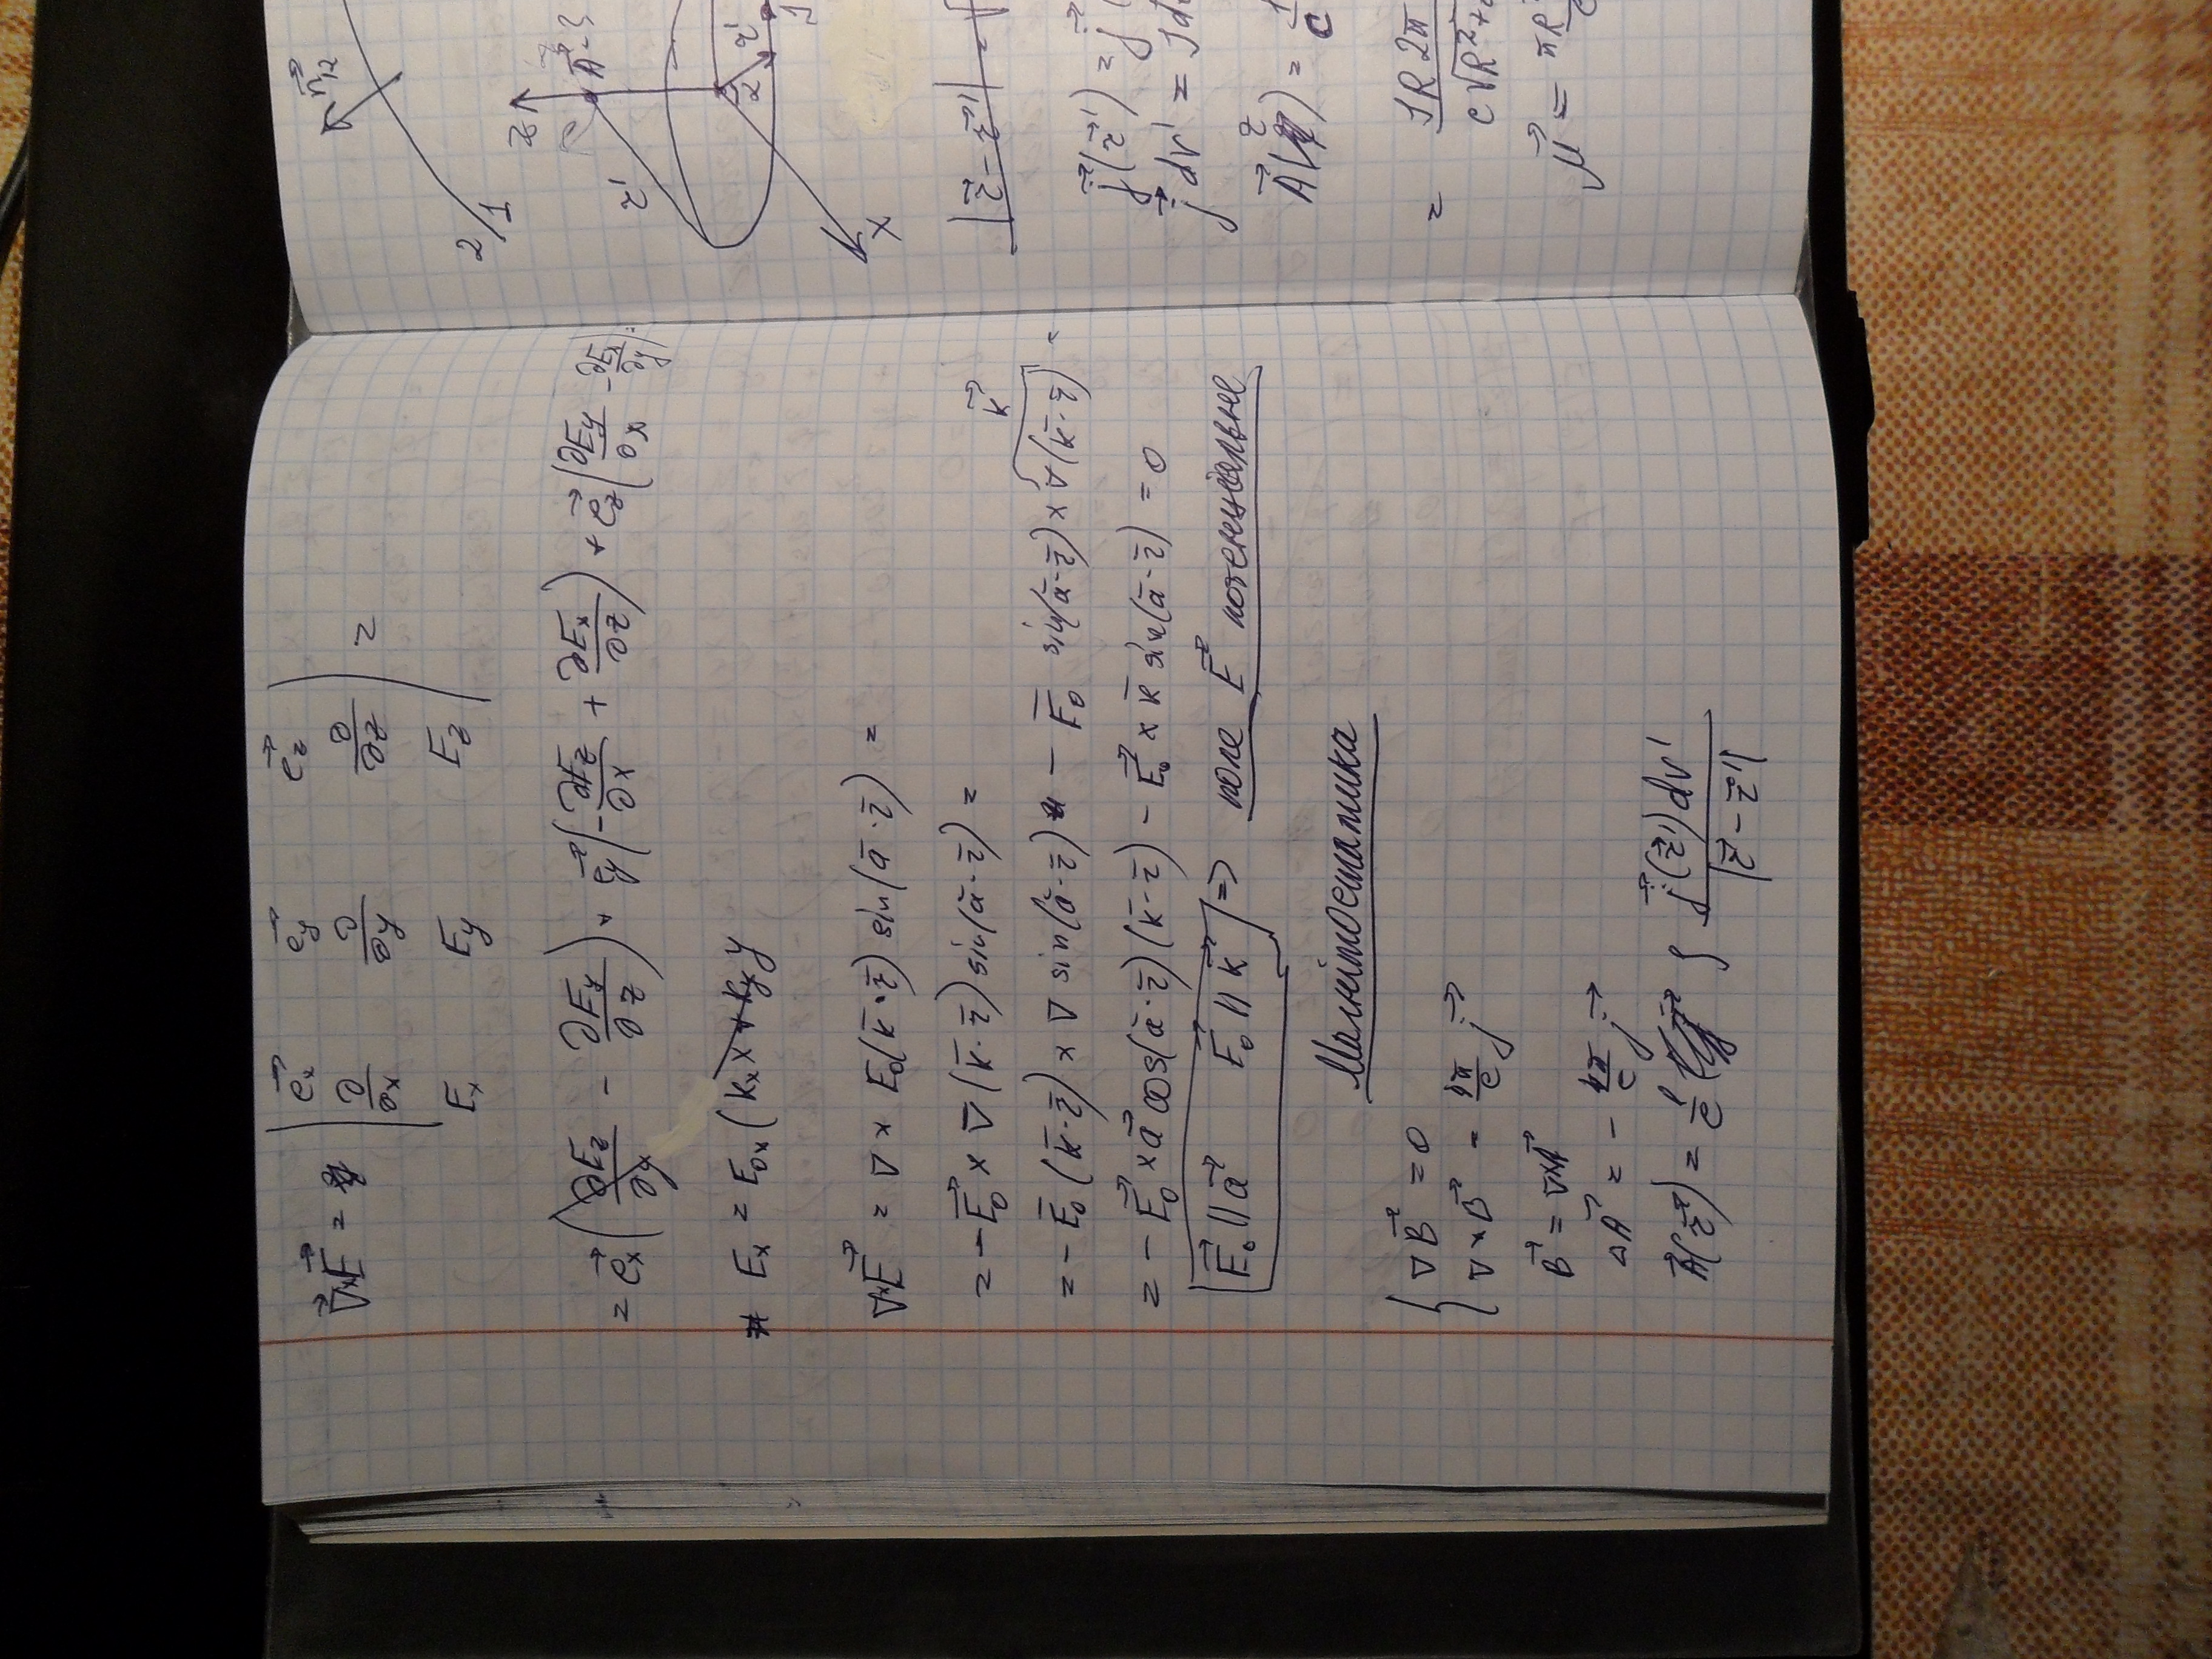 ∇⃗×E⃗ = | e⃗x e⃗y e⃗z |
∂/∂x ∂/∂y ∂/∂z =
Ex Ey Ez
= e⃗x(∂Ez/∂y - ∂Ey/∂z) + e⃗y(-∂Ez/∂x + ∂Ex/∂z) + e⃗z(∂Ey/∂x - ∂Ex/∂y) =
Ex = E0x(kx x + ky y
∇×E⃗ = ∇ × E0(k̄·r̄) sin(ā·r̄) =
= -E⃗0 × ∇(k̄·r̄) sin(ā·r̄) =
= -Ē0(k̄·r̄) × ∇ sin(ā·r̄) - Ē0 sin(ā·r̄) × ∇(k̄·r̄) =
k⃗
= -E⃗0 × a⃗ cos(ā·r̄)(k̄·r̄) - E⃗0 × k̄ sin(ā·r̄) = 0
E⃗0 || a⃗ E⃗0 || k⃗ => поле E⃗ потенциальное
Магнитостатика
{ ∇B⃗ = 0
∇×B⃗ = 4π/c j⃗
B⃗ = ∇×A⃗
ΔA⃗ = - 4π/c j⃗
A⃗(r⃗) = 1/c ∫ j⃗(r⃗')dv' / |r⃗ - r⃗'|
n⃗12
2/1
z
A⃗ - ?
r'
r'
x
|r⃗ - r⃗'| = √
j⃗(r⃗') = j
j⃗ dv' = Jd
A⃗(r) = 1/c
= JR2π / c√R²+
μ⃗ = πR²